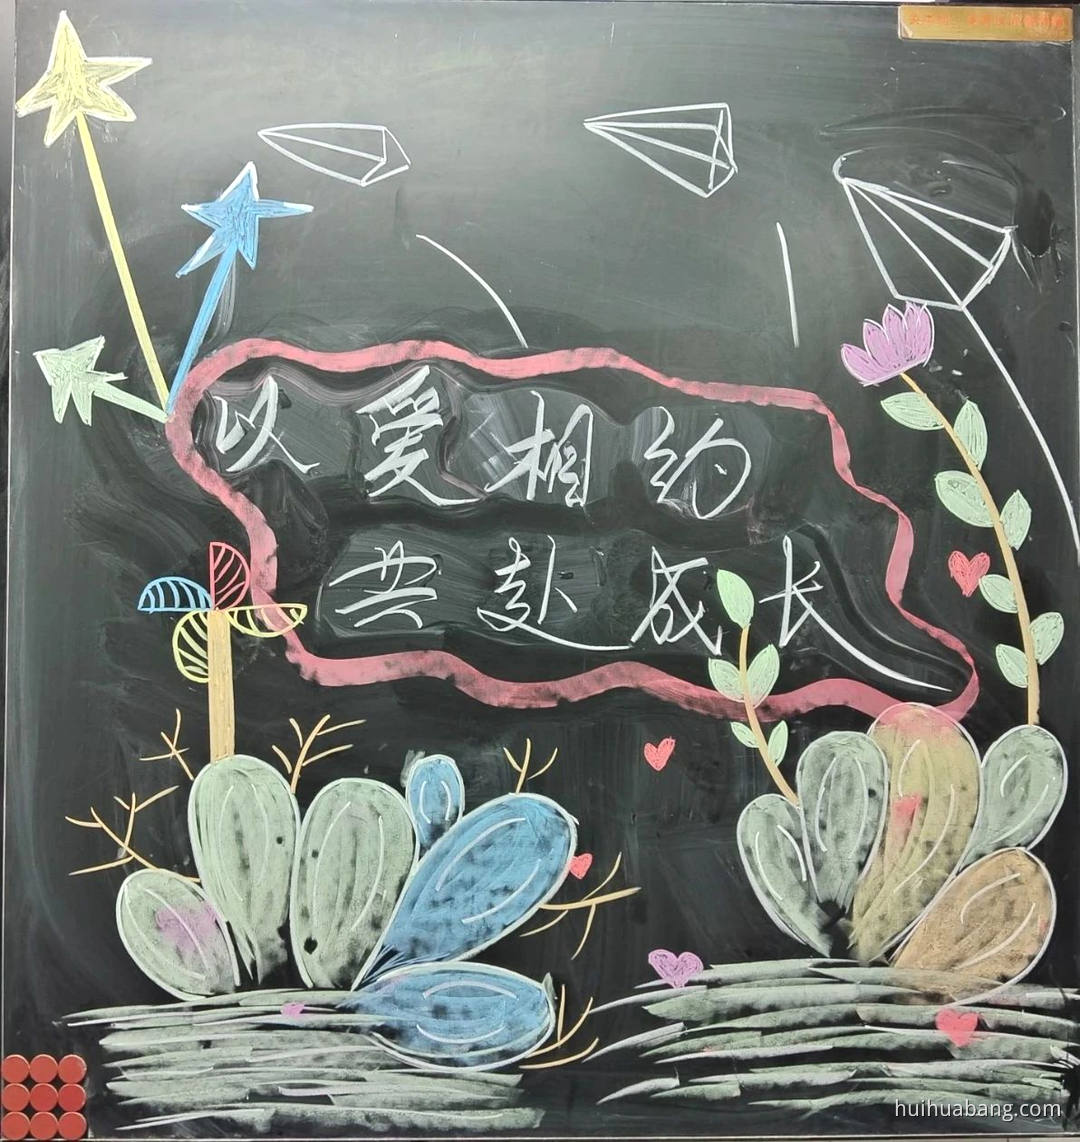 以爱相约
共赴成长
huihuabang.com